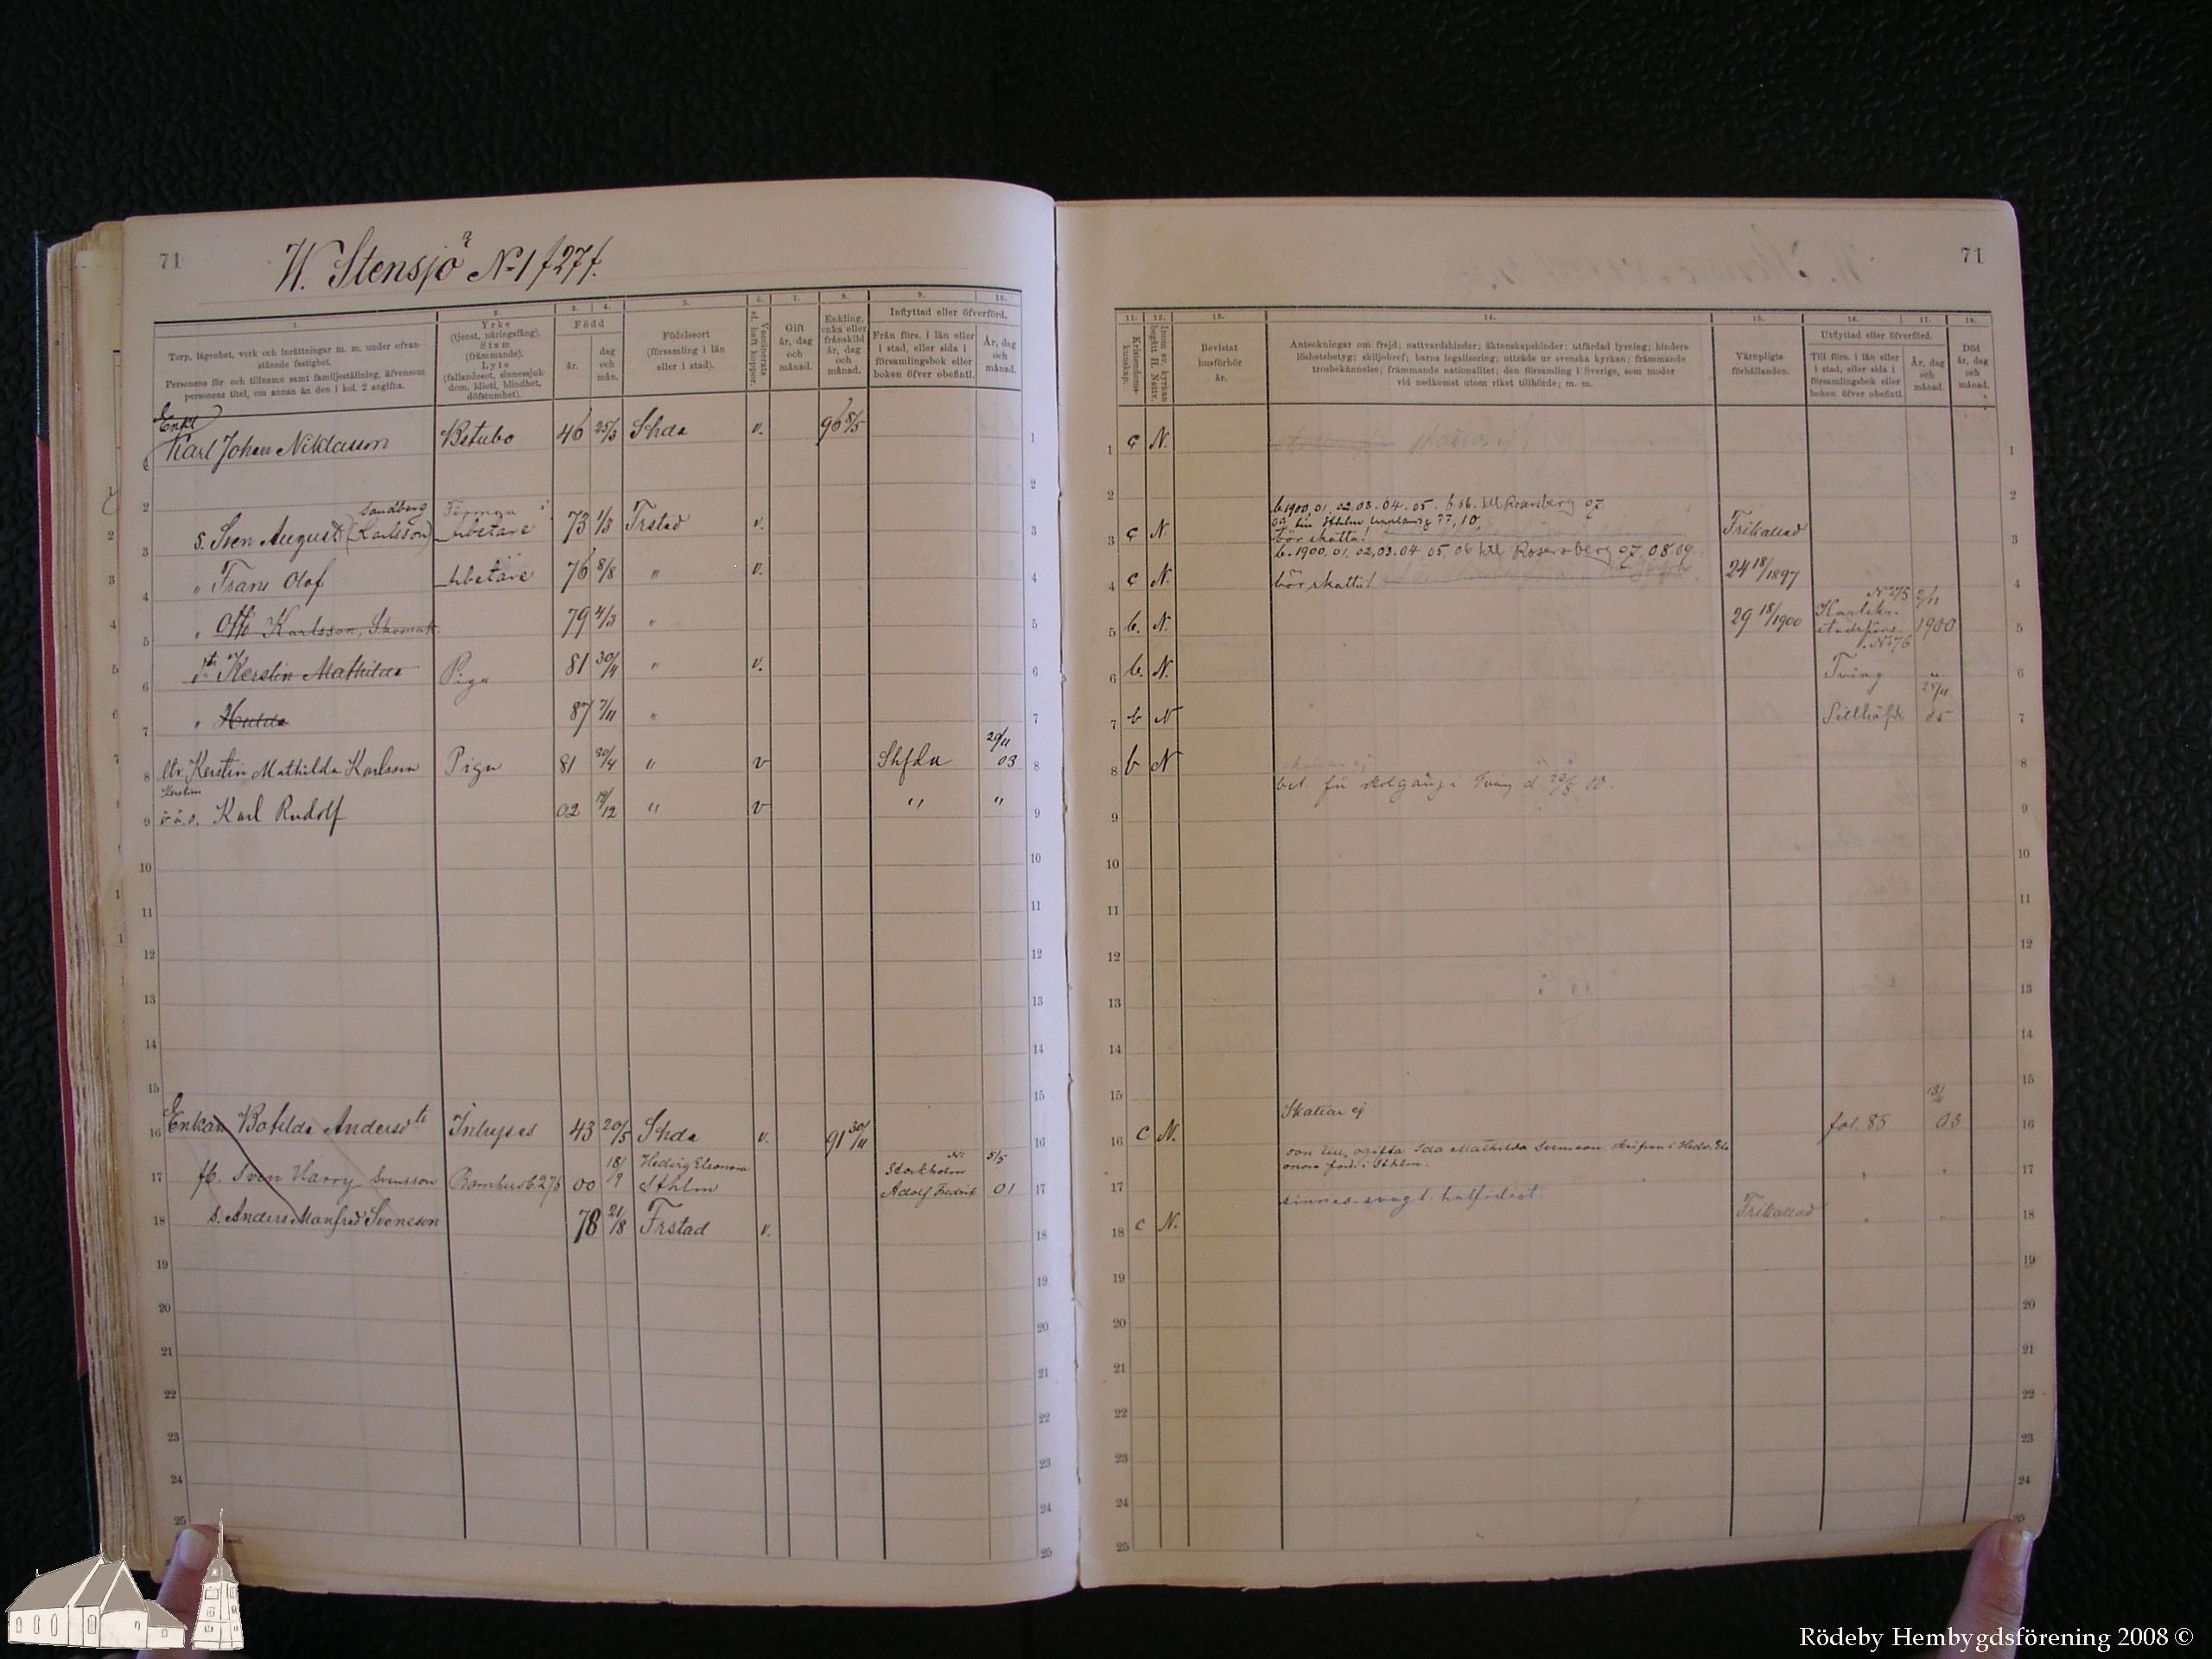 71
W. Stensjö No 1 f27f.
1.
2.
3.
4.
5.
6.
7.
8.
9.
10.
Torp, lägenhet, verk och inrättningar m. m. under ofvan-
stående fastighet.
Personens för- och tillnamn samt familjeställning, äfvensom
personens titel, om annan än den i kol. 2 angifna.
Yrke
(tjenst, näringsfång).
Stam
(främmande).
Lyte
(fallandesot, sinnessjuk-
dom, idioti, blindhet,
döfstumhet).
Född
år.
dag
och
mån.
Födelseort
(församling i län
eller i stad).
Vaccinerats
el. haft koppor.
Gift
år, dag
och
månad.
Enkling,
enka eller
frånskild
år, dag
och
månad.
Inflyttad eller öfverförd.
Från förs. i län eller
i stad, eller sida i
församlingsbok eller
boken öfver obefintl.
År, dag
och
månad.
Enkl
Karl Johan Niklasson 46 25/3 Shda v. 96 8/5
Sandberg Förman
s. Sven August (Karlsson) Arbetare 73 1/3 Frstad v.
" Frans Olof Arbetare 76 8/8 " v.
" Otto Karlsson, Skomak. 79 4/3 "
dtr Kerstin Mathilda Piga 81 30/4 " v.
" Hulda 87 7/11 "
dtr. Kerstin Mathilda Karlsson Piga 81 30/4 " v Shfda 20/11 03
Kerstins
o.ä.s. Karl Rudolf 02 19/12 " v " "
Enkan Botilda Andersdtr Inhyses 43 20/5 Shda v. 91 30/11
fb. Sven Harry Svensson Barnhusb. 276 00 18/9 Hedvig Eleonora Sthlm Stockholm Adolf Fredrik 5/5 01
s. Anders Manfred Svensson 78 21/8 Frstad v.
71
11.
12.
13.
14.
15.
16.
17.
18.
Kristendoms-
kunskap.
Inom sv. kyrkan
begått H. Nattv.
Bevistat
husförhör
år.
Anteckningar om frejd; nattvardshinder; äktenskapshinder; utfärdad lysning; hinders-
löshetsbetyg; skiljobref; barns legalisering; utträde ur svenska kyrkan; främmande
trosbekännelse; främmande nationalitet; den församling i Sverige, som moder
vid nedkomst utom riket tillhörde; m. m.
Värnpligts-
förhållanden.
Utflyttad eller öfverförd.
Till förs. i län eller
i stad, eller sida i
församlingsbok eller
boken öfver obefintl.
År, dag
och
månad.
Död
år, dag
och
månad.
c N.
b 1900, 01, 02, 03. 04. 05. till Rosersberg 07
c N. bör skatta! Frikallad
b. 1900, 01, 02, 03. 04 05, 06 till Rosersberg 07, 08, 09.
c N. bör skatta! 24 18/1897
b. N. 29 18/1900 Karlskr. stadsförs. 2/11 1900
b. N. Tving "
b N Sillhöfda 25/11 05
b N
bet. för skolgång i Tving d. 20/5 10.
Skattar ej
c N. fol. 85 13/6 03
son till ogifta Ida Mathilda Svensson, skrifven i Hedv. Ele
onora förs. i Sthlm.
sinnes-svagt halfidiot.
c N. Frikallad
Rödeby Hembygdsförening 2008 ©